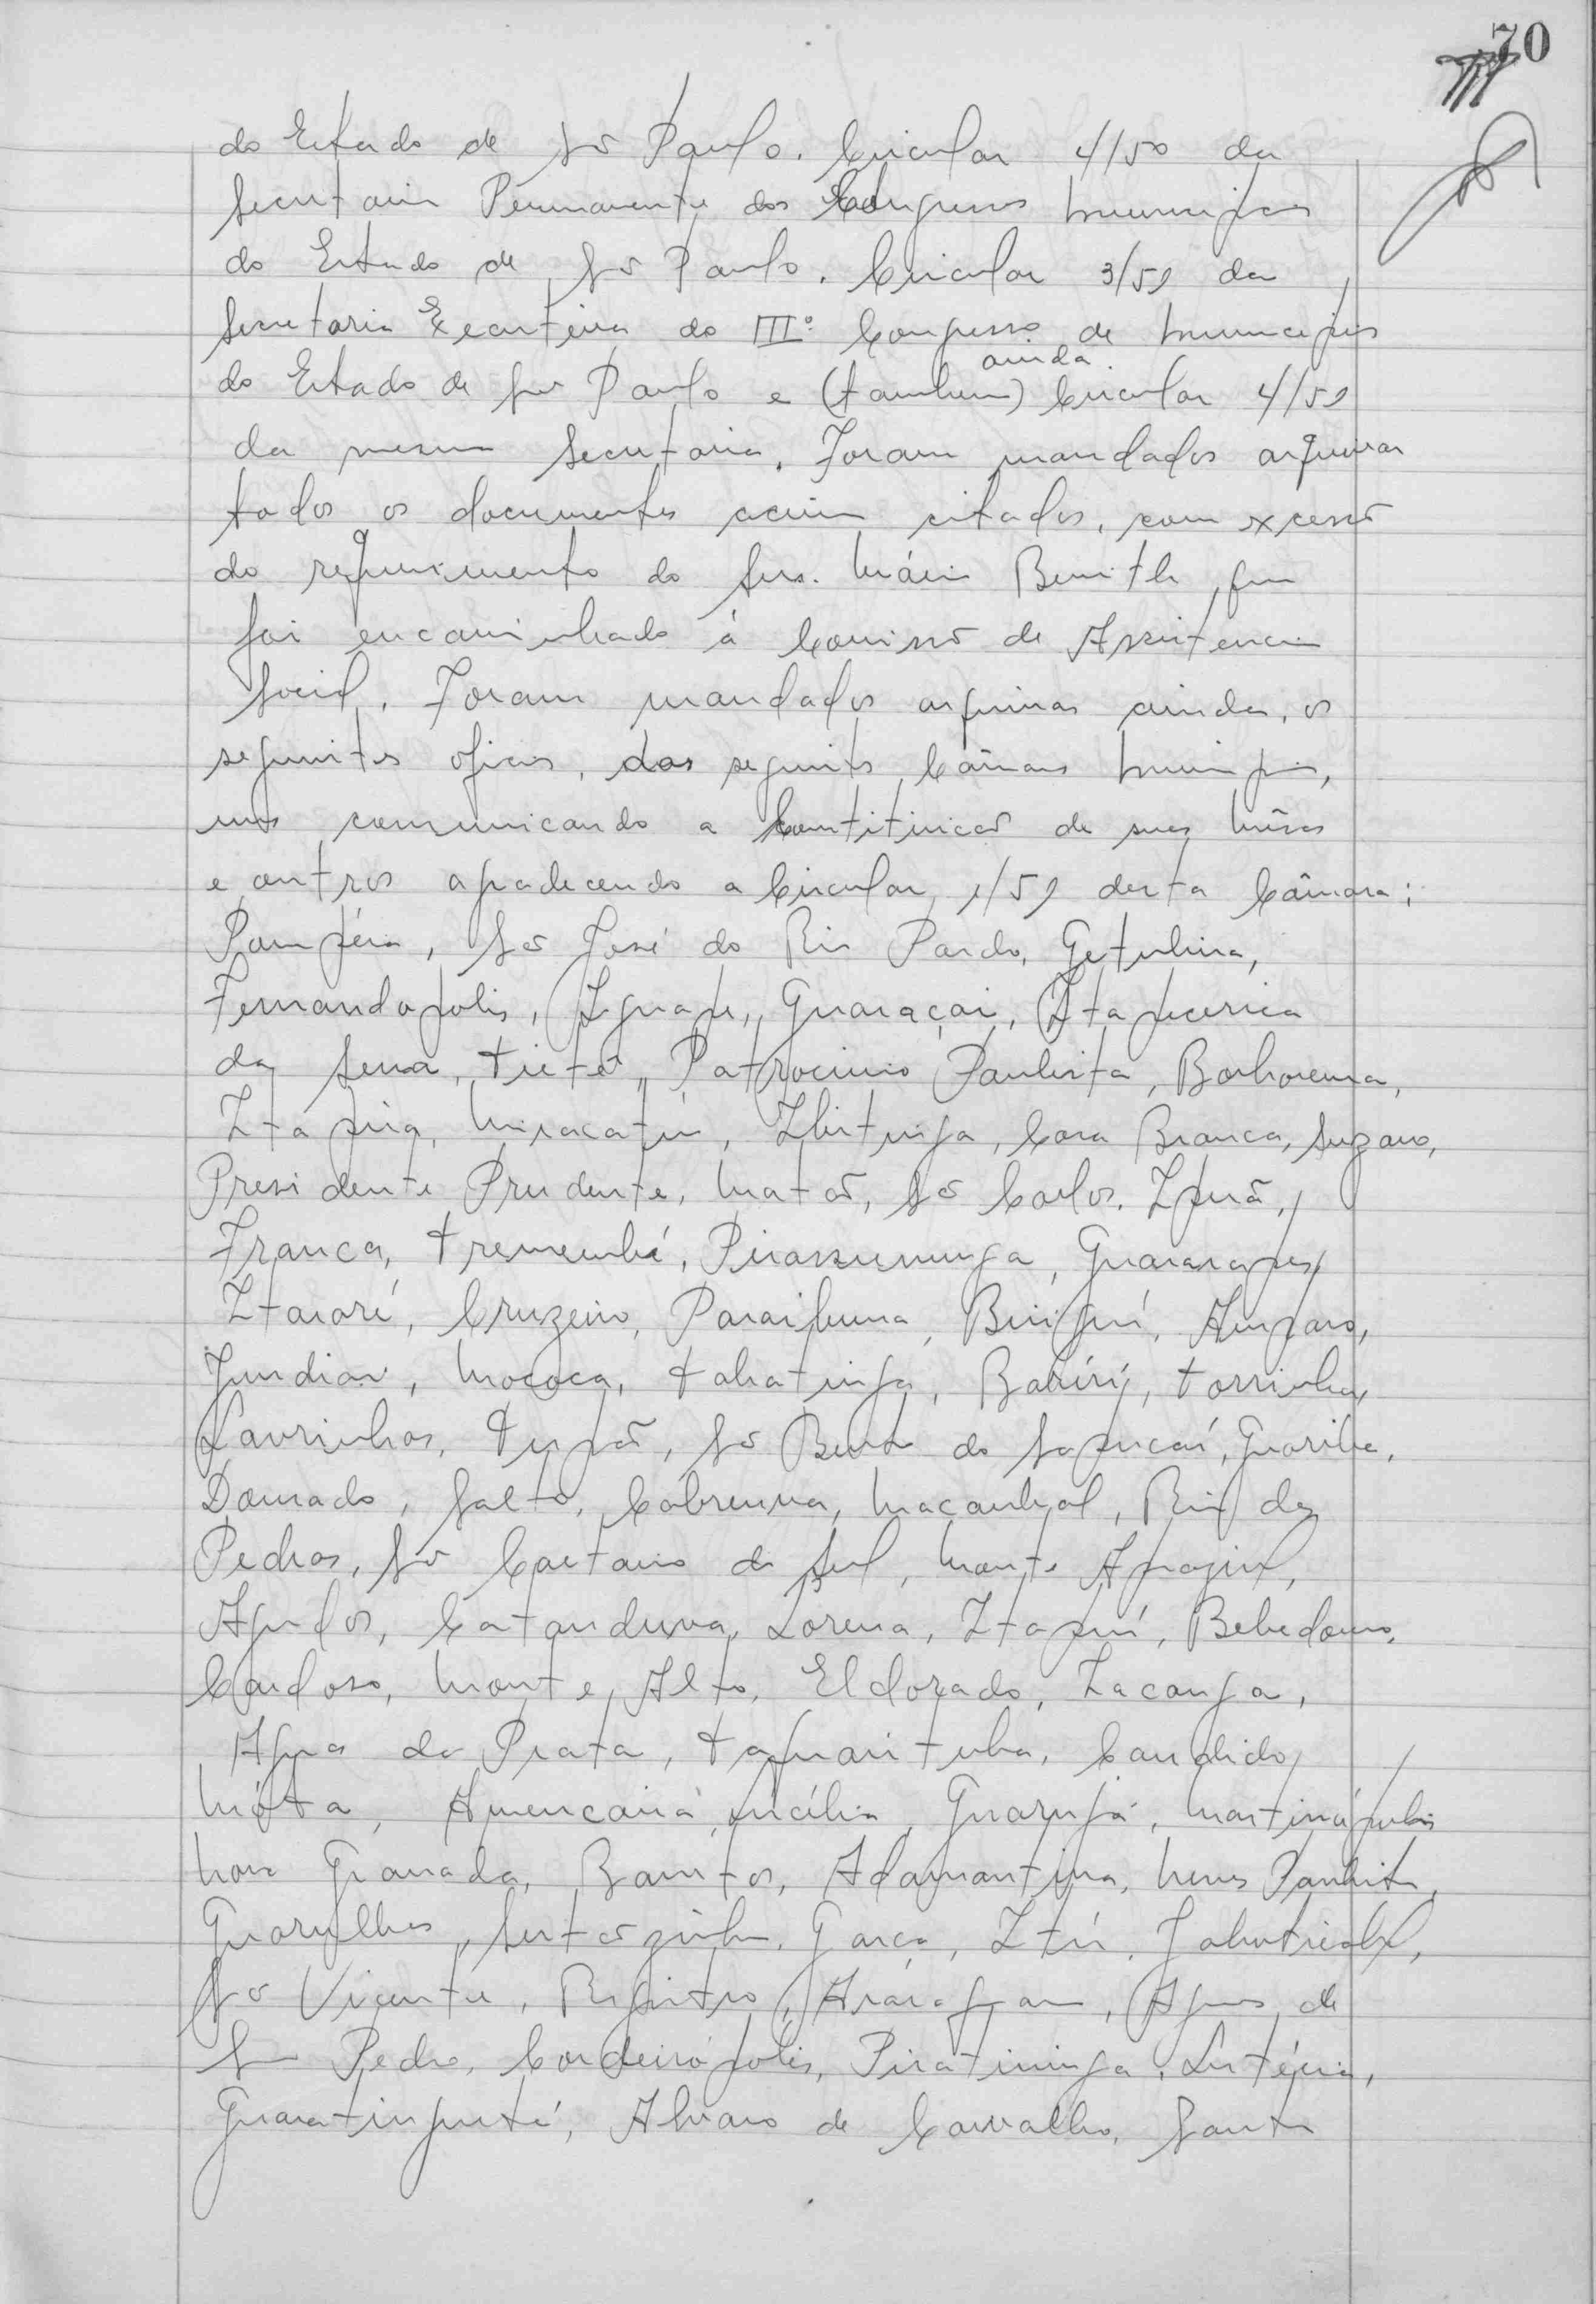 70
do Estado de São Paulo. Circular 4/50 da
Secretaria Permanente dos Congressos Municipais
do Estado de São Paulo. Circular 3/59 da
Secretaria Executiva do IIIº Congresso de Municipios
ainda
do Estado de São Paulo e (tambem) Circular 4/59
da mesma Secretaria. Foram mandados arquivar
todos os documentos acima citados, com excessão
do requerimento do Snr. Mário Benith, que
foi encaminhado á Comissão de Assistencia
Social. Foram mandados arquivar ainda, os
seguintes oficios, das seguintes Câmaras Municipais,
uns comunicando a Constituição de suas Mêsas
e outros agradecendo a Circular 1/59 desta Câmara:
Pompéia, São José do Rio Pardo, Getulina,
Fernandopolis, Iguape, Guaraçai, Itapecerica
da Serra, Tietê, Patrocinio Paulista, Borborema,
Itápira, Miracatú, Ibitinga, Casa Branca, Suzano,
Presidente Prudente, Matão, São Carlos, Ipuã,
Franca, Tremembé, Pirassununga, Guararapes,
Itararé, Cruzeiro, Paraibuna, Biriguí, Amparo,
Jundiaí, Mococa, Tabatinga, Barirí, Torrinha,
Lavrinhas, Tupã, São Bento do Sapucaí, Guariba,
Dourado, Salto, Cabreuva, Macaubal, Rio das
Pedras, São Caetano do Sul, Monte Aprazivel,
Agudos, Catanduva, Lorena, Itapuí, Bebedouro,
Cardoso, Monte Alto, Eldorado, Iacanga,
Agua da Prata, Taquarituba, Candido
Móta, Americana, Lucélia, Guarujá, Martinópolis
Nova Granada, Barretos, Adamantina, Neves Paulista,
Guarulhos, Sertãozinho, Garça, Itú, Jaboticabal,
São Vicente, Registro, Araraquara, Aguas de
São Pedro, Cordeirópolis, Piratininga, Lutécia,
Guaratinguetá, Alvaro de Carvalho, Santa